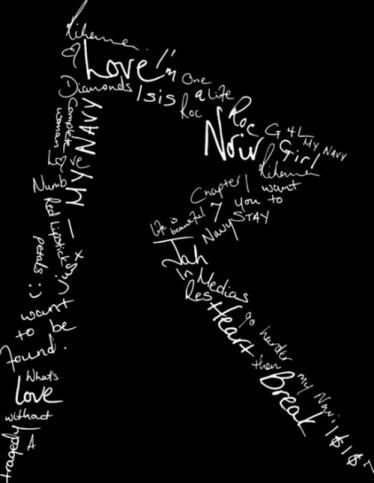 Rihanna
Love
I'm
One
Diamonds
Isis
a life
Roc
Roc
Noir
G4L
MY NAVY
Girl
Rihanna
Chapter 7
I want
you to
STAY
Navy
Life is
beautiful
Jah
In Medias
Res
Heart
Break
go harder
then
my Navi
1$1$
MY NAVY
Complete
woman
Love
Numb
Red Lipstick
petals
I just
want
to be
found.
What's
Love
without
tragedy
A